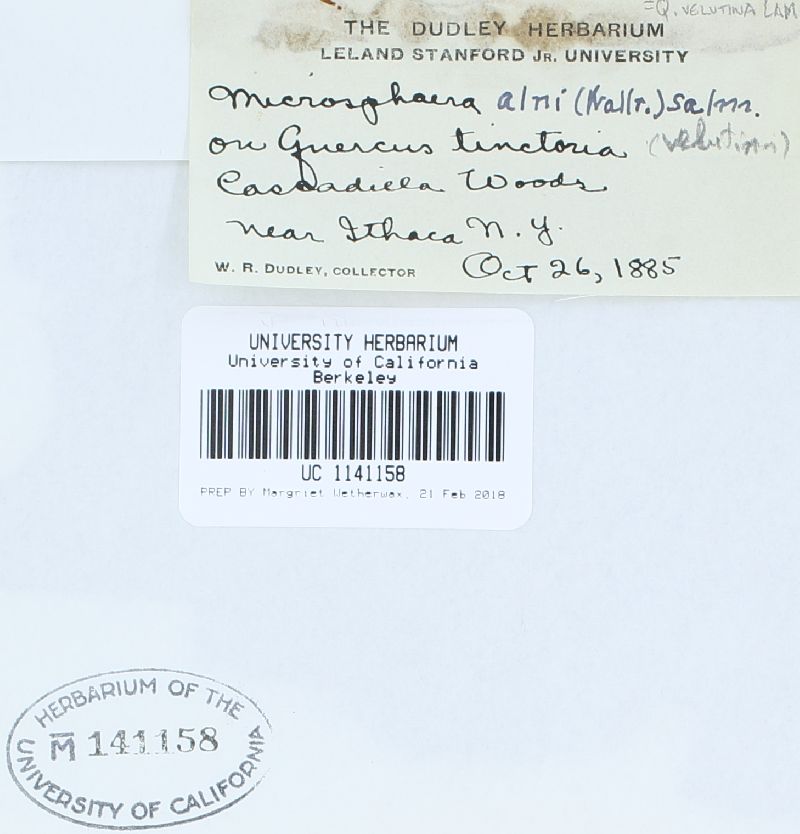 =Q. VELUTINA LAM
THE DUDLEY HERBARIUM
LELAND STANFORD JR. UNIVERSITY
Microsphaera alni (Wallr.) Salm.
on Quercus tinctoria (velutina)
Cascadilla Woods
near Ithaca N. Y.
W. R. DUDLEY, COLLECTOR Oct 26, 1885
UNIVERSITY HERBARIUM
University of California
Berkeley
UC 1141158
PREP BY Margriet Wetherwax, 21 Feb 2018
HERBARIUM OF THE
M 141158
UNIVERSITY OF CALIFORNIA